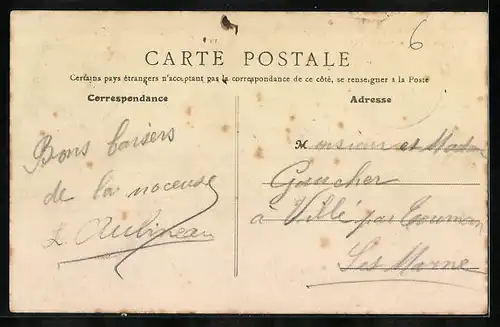 6
CARTE POSTALE
Certains pays étrangers n'acceptant pas la correspondance de ce côté, se renseigner à la Poste
Correspondance
Adresse
Bons baisers
de la noceuse
Aubineau
Monsieur et Madame
Gaucher
à Villé par Tournan
Set Marne